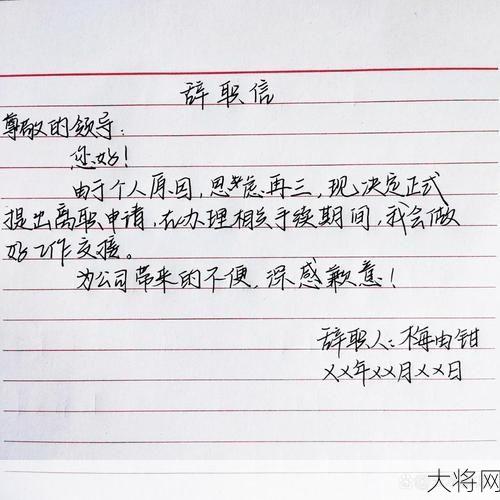 辞职信
尊敬的领导：
您好！
由于个人原因，思考再三，现决定正式
提出离职申请，在办理相关手续期间，我会做
好工作交接。
为公司带来的不便，深感歉意！
辞职人：梅由钳
××年××月××日
大将网